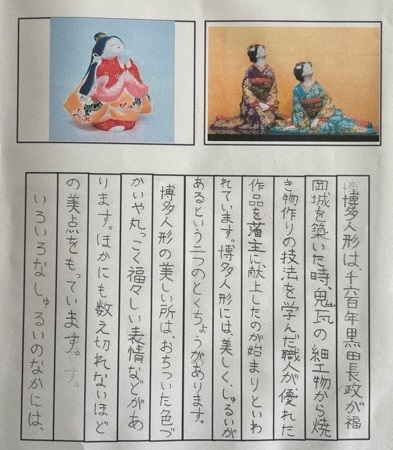 博多人形は、千六百年黒田長政が福
岡城を築いた時、鬼瓦の細工物から焼
き物作りの技法を学んだ職人が、優れた
作品を藩主に献上したのが始まりといわ
れています。博多人形には、美しく、しゅるいが
あるという二つのとくちょうがあります。
博多人形の美しい所は、おちついた色づ
かいや丸っこく福々しい表情などがあ
ります。ほかにも数え切れないほど
の美点をもっています。
いろいろなしゅるいのなかには、